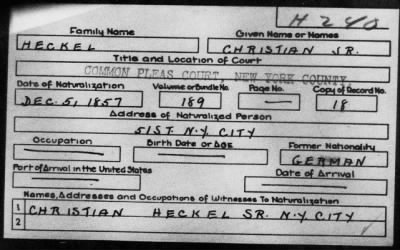 H 240
Family Name Given Name or Names
HECKEL CHRISTIAN JR.
Title and Location of Court
COMMON PLEAS COURT, NEW YORK COUNTY.
Date of Naturalization Volume or Bundle No. Page No. Copy of Record No.
DEC. 5, 1857 189 — 18
Address of Naturalized Person
51 ST. N.Y. CITY
Occupation Birth Date or Age Former Nationality
— — GERMAN
Port of Arrival in the United States Date of Arrival
— —
Names, Addresses and Occupations of Witnesses To Naturalization
1 CHRISTIAN HECKEL SR. N.Y. CITY
2